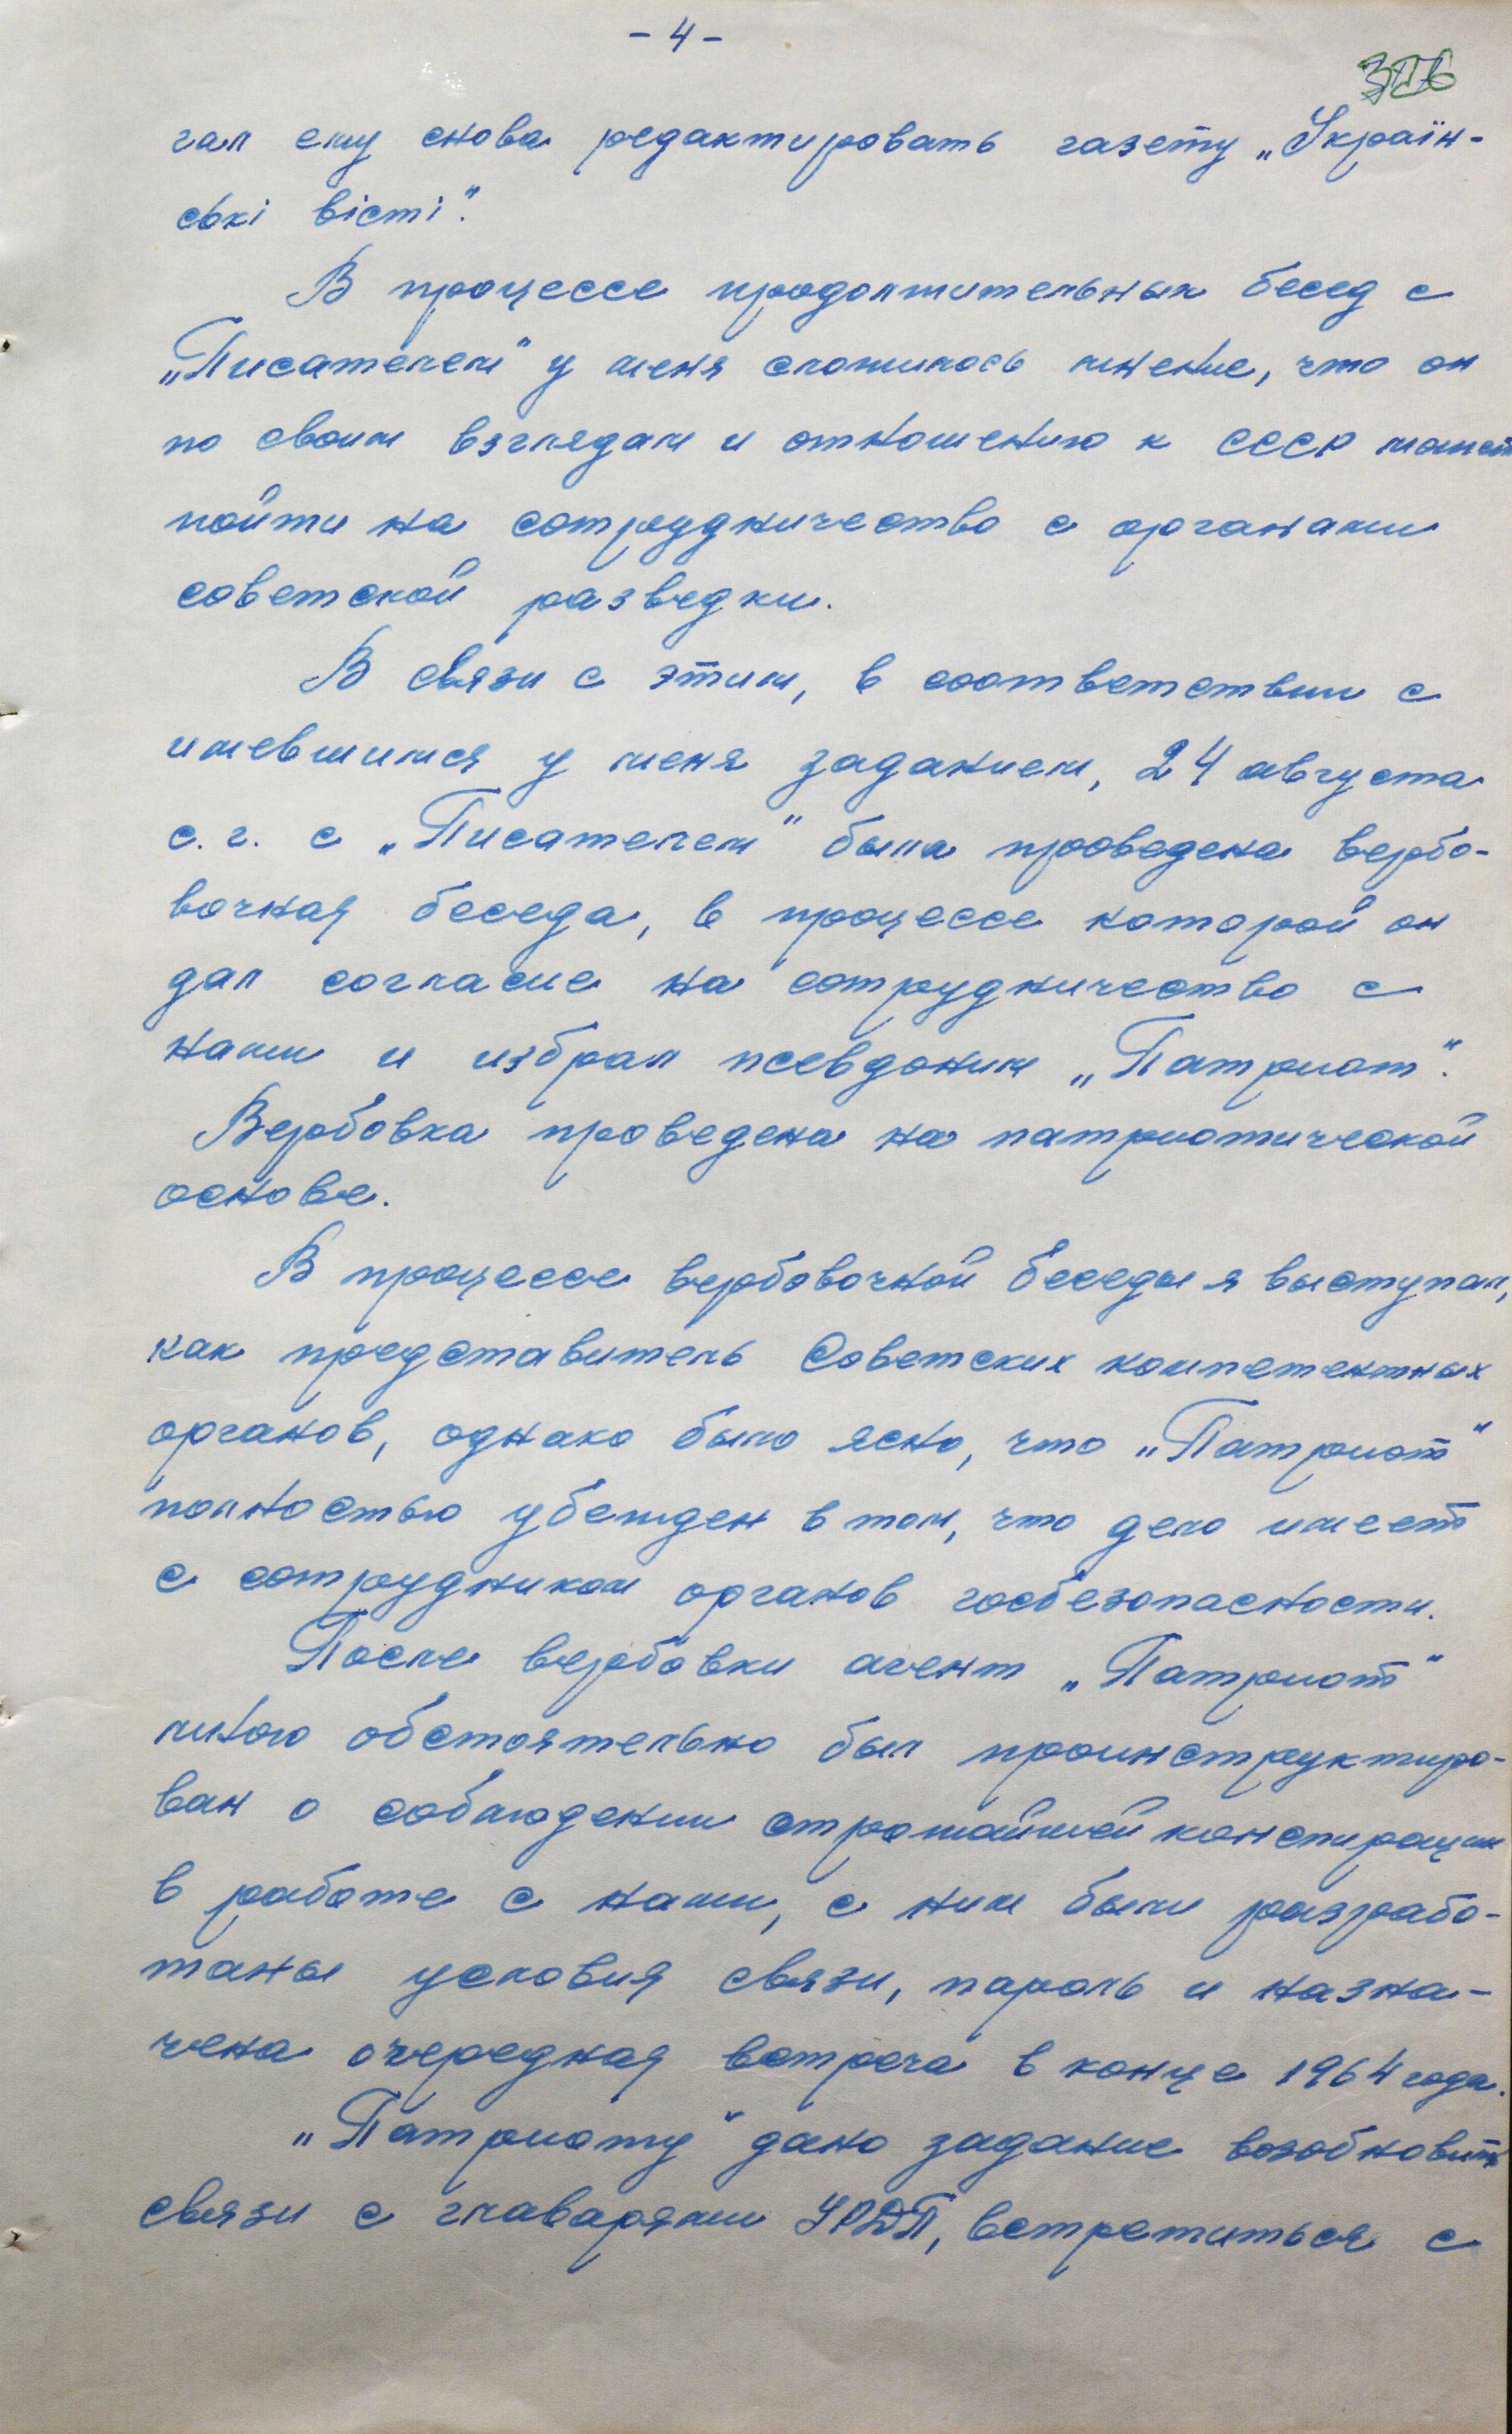 - 4 -
гал ему снова редактировать газету „Україн-
ські вісті".
В процессе продолжительных бесед с
„Писателем" у меня сложилось мнение, что он
по своим взглядам и отношению к СССР может
пойти на сотрудничество с органами
советской разведки.
В связи с этим, в соответствии с
имевшимся у меня заданием, 24 августа
с.г. с „Писателем" была проведена вербо-
вочная беседа, в процессе которой он
дал согласие на сотрудничество с
нами и избрал псевдоним „Патриот".
Вербовка проведена на патриотической
основе.
В процессе вербовочной беседы я выступал,
как представитель Советских компетентных
органов, однако было ясно, что „Патриот"
полностью убежден в том, что дело имеет
с сотрудником органов госбезопасности.
После вербовки агент „Патриот"
мною обстоятельно был проинструктиро-
ван о соблюдении строжайшей конспирации
в работе с нами, с ним были разрабо-
таны условия связи, пароль и назна-
чена очередная встреча в конце 1964 года.
„Патриоту" дано задание возобновить
связи с главарями УРДП, встретиться с